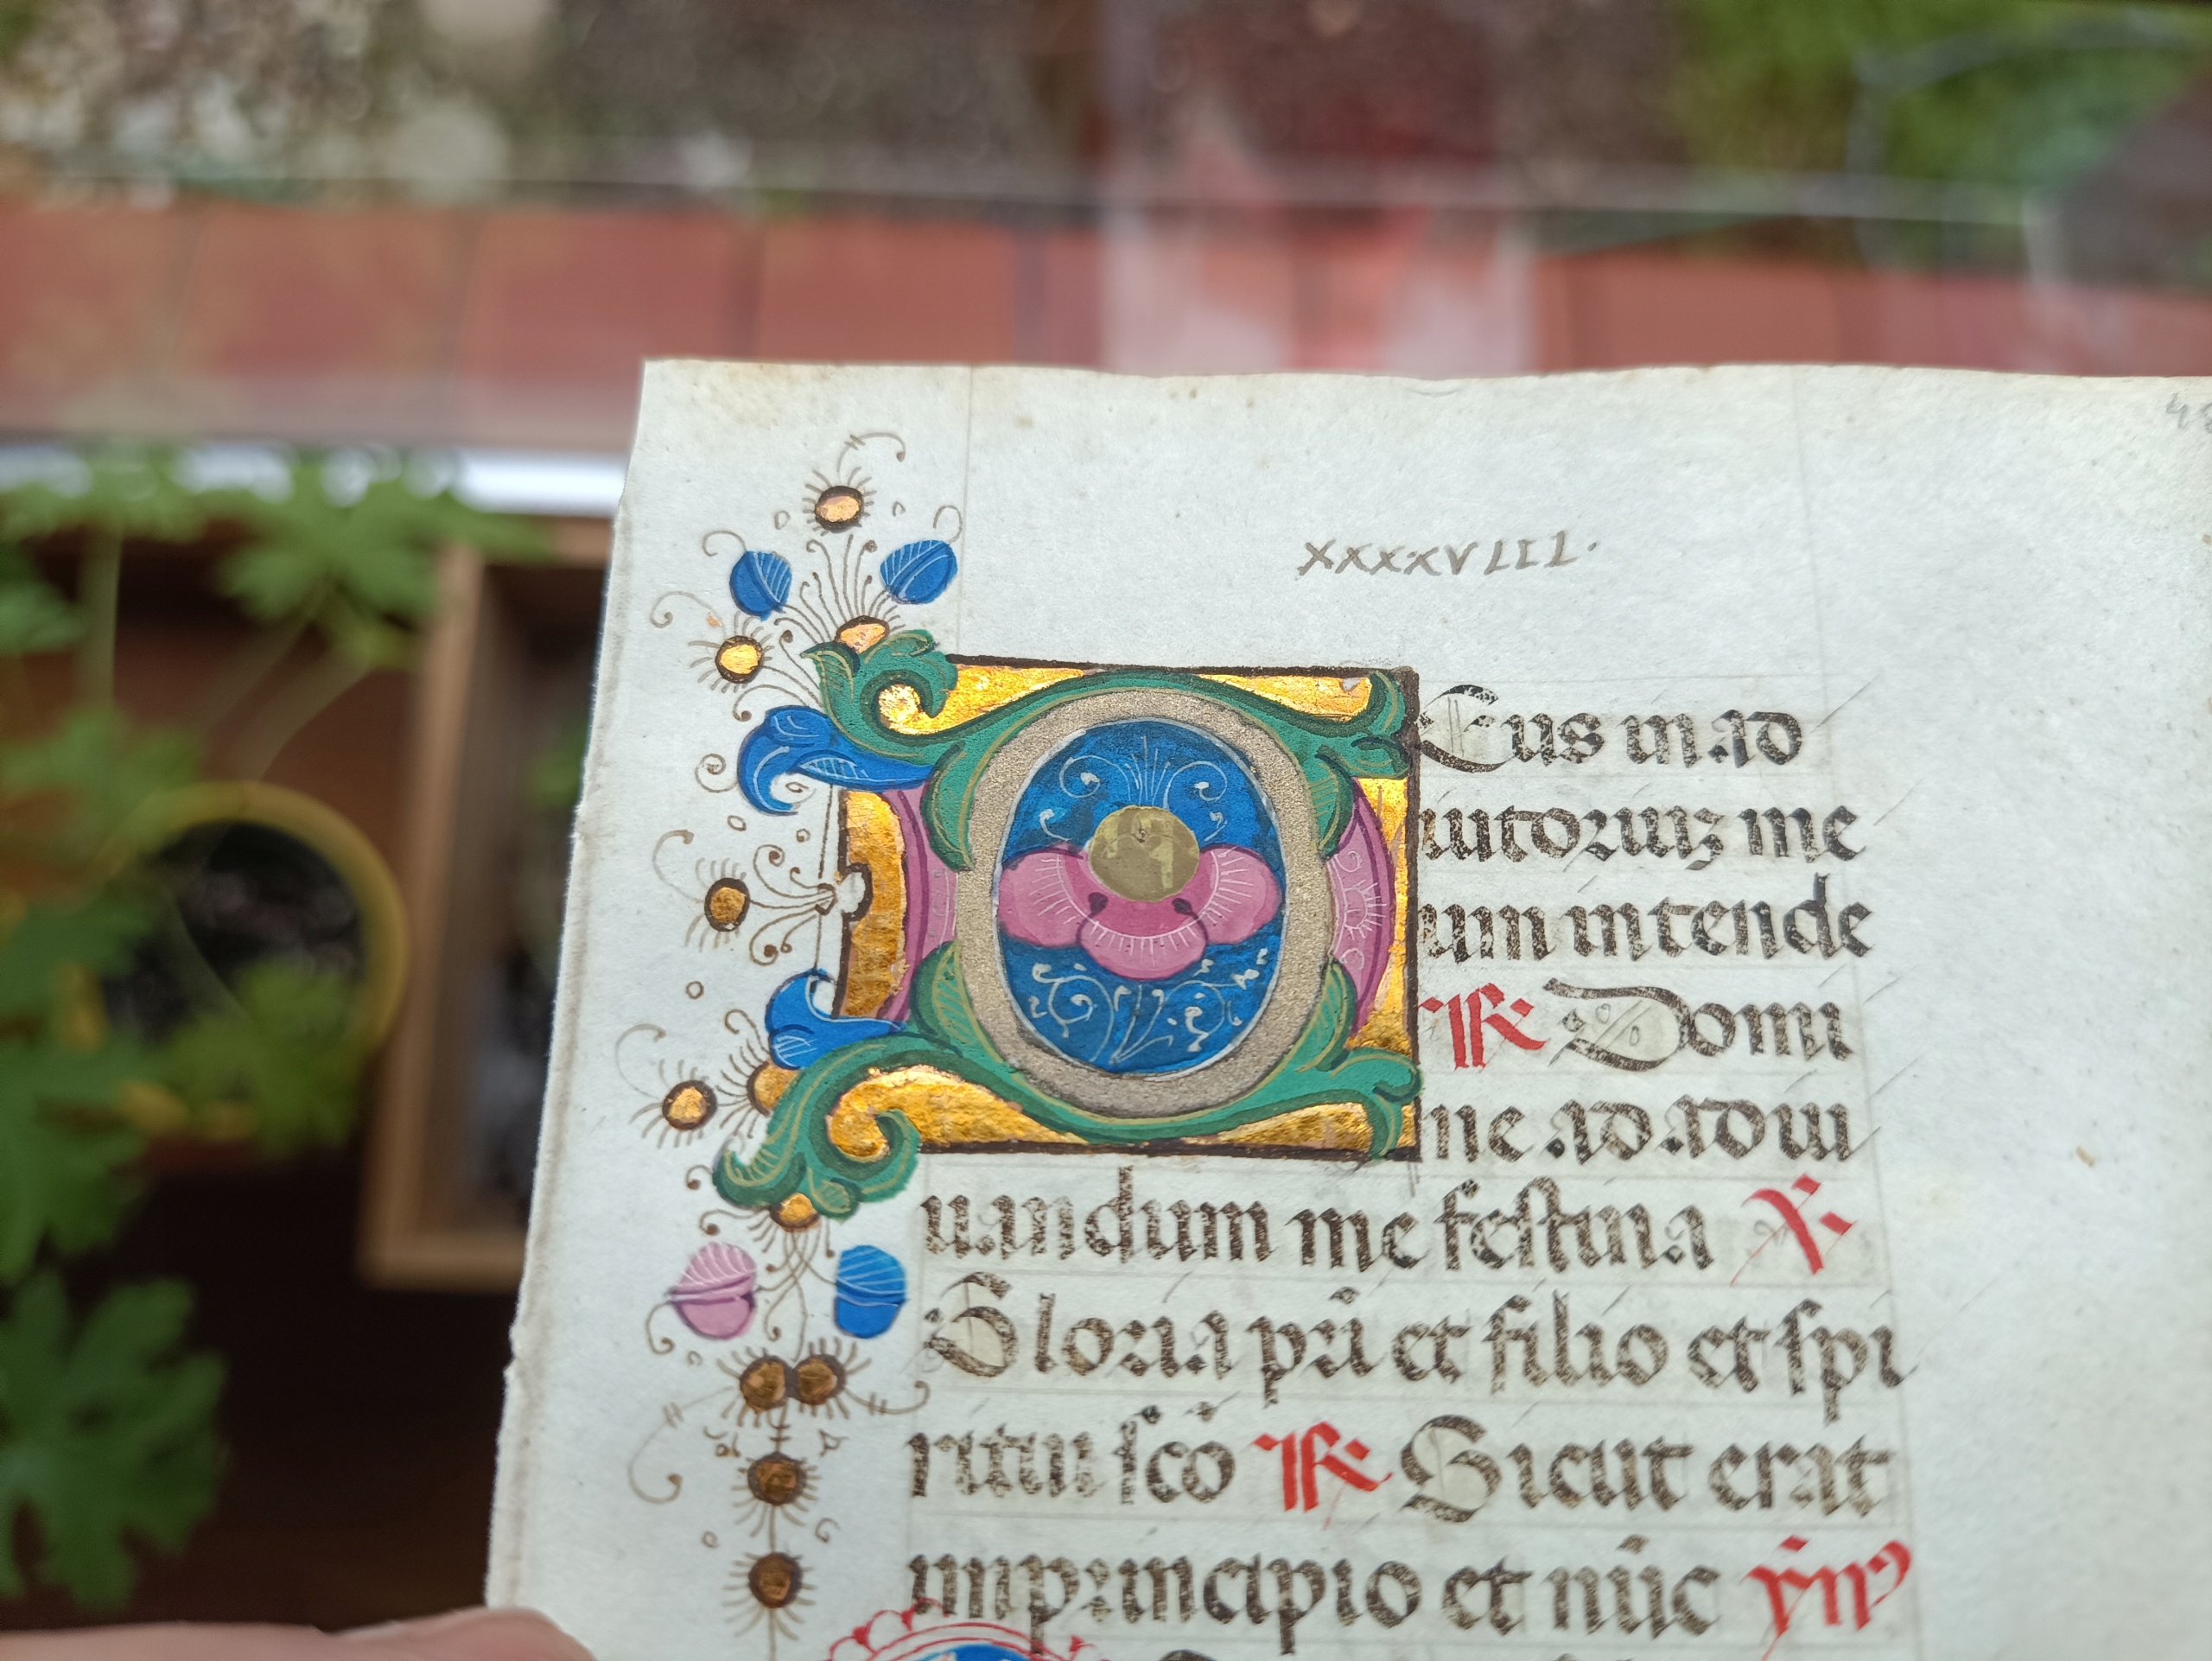 XXXXVIII.
DEus in ad
iutoriuʒ me
um intende
℟ Domi
ne ad adiu
uandum me festina ℣
Gloria pr̄i et filio et spi
ritui sc̄o ℟ Sicut erat
in principio et nūc ẏm̄9